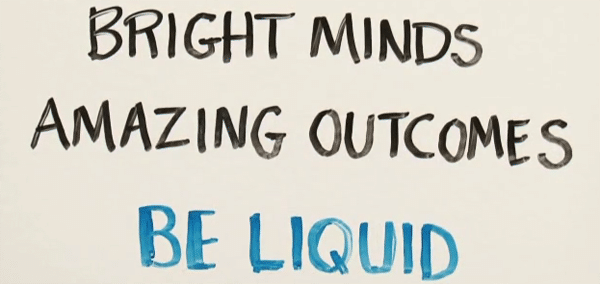 BRIGHT MINDS
AMAZING OUTCOMES
BE LIQUID